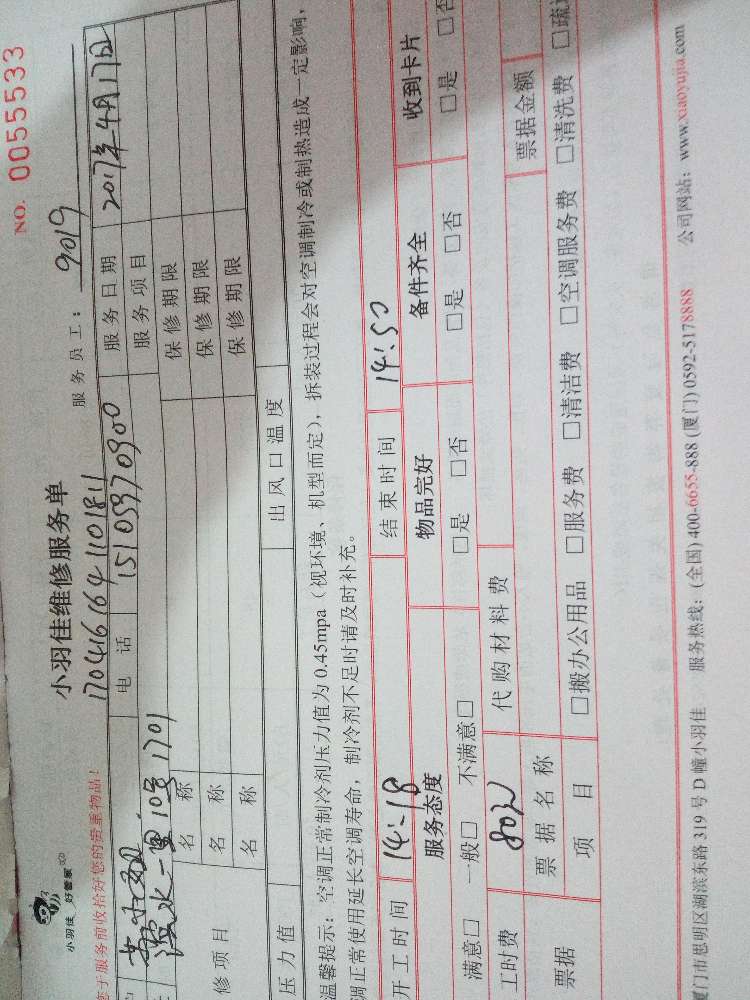 NO. 0055533
小羽佳 好管家
小羽佳维修服务单
1704161641101811
服务员工：9019
您于服务前收拾好您的贵重物品！
电话 15105970900 服务日期 2017年4月17日
一里10号1701 服务项目
修项目 名称 保修期限
名称 保修期限
名称 保修期限
压力值 出风口温度
温馨提示：空调正常制冷剂压力值为0.45mpa（视环境、机型而定），拆装过程会对空调制冷或制热造成一定影响，
调正常使用延长空调寿命，制冷剂不足时请及时补充。
开工时间 14:18 结束时间 14:50
服务态度 物品完好 备件齐全 收到卡片
满意□ 一般□ 不满意□ □是 □否 □是 □否 □是 □否
工时费 80元 代购材料费
票据 票据名称 票据金额
项目 □搬办公用品 □服务费 □清洁费 □空调服务费 □清洗费 □疏
厦门市思明区湖滨东路319号D幢小羽佳 服务热线：(全国) 400-6655-888 (厦门) 0592-5178888 公司网站：www.xiaoyujia.com